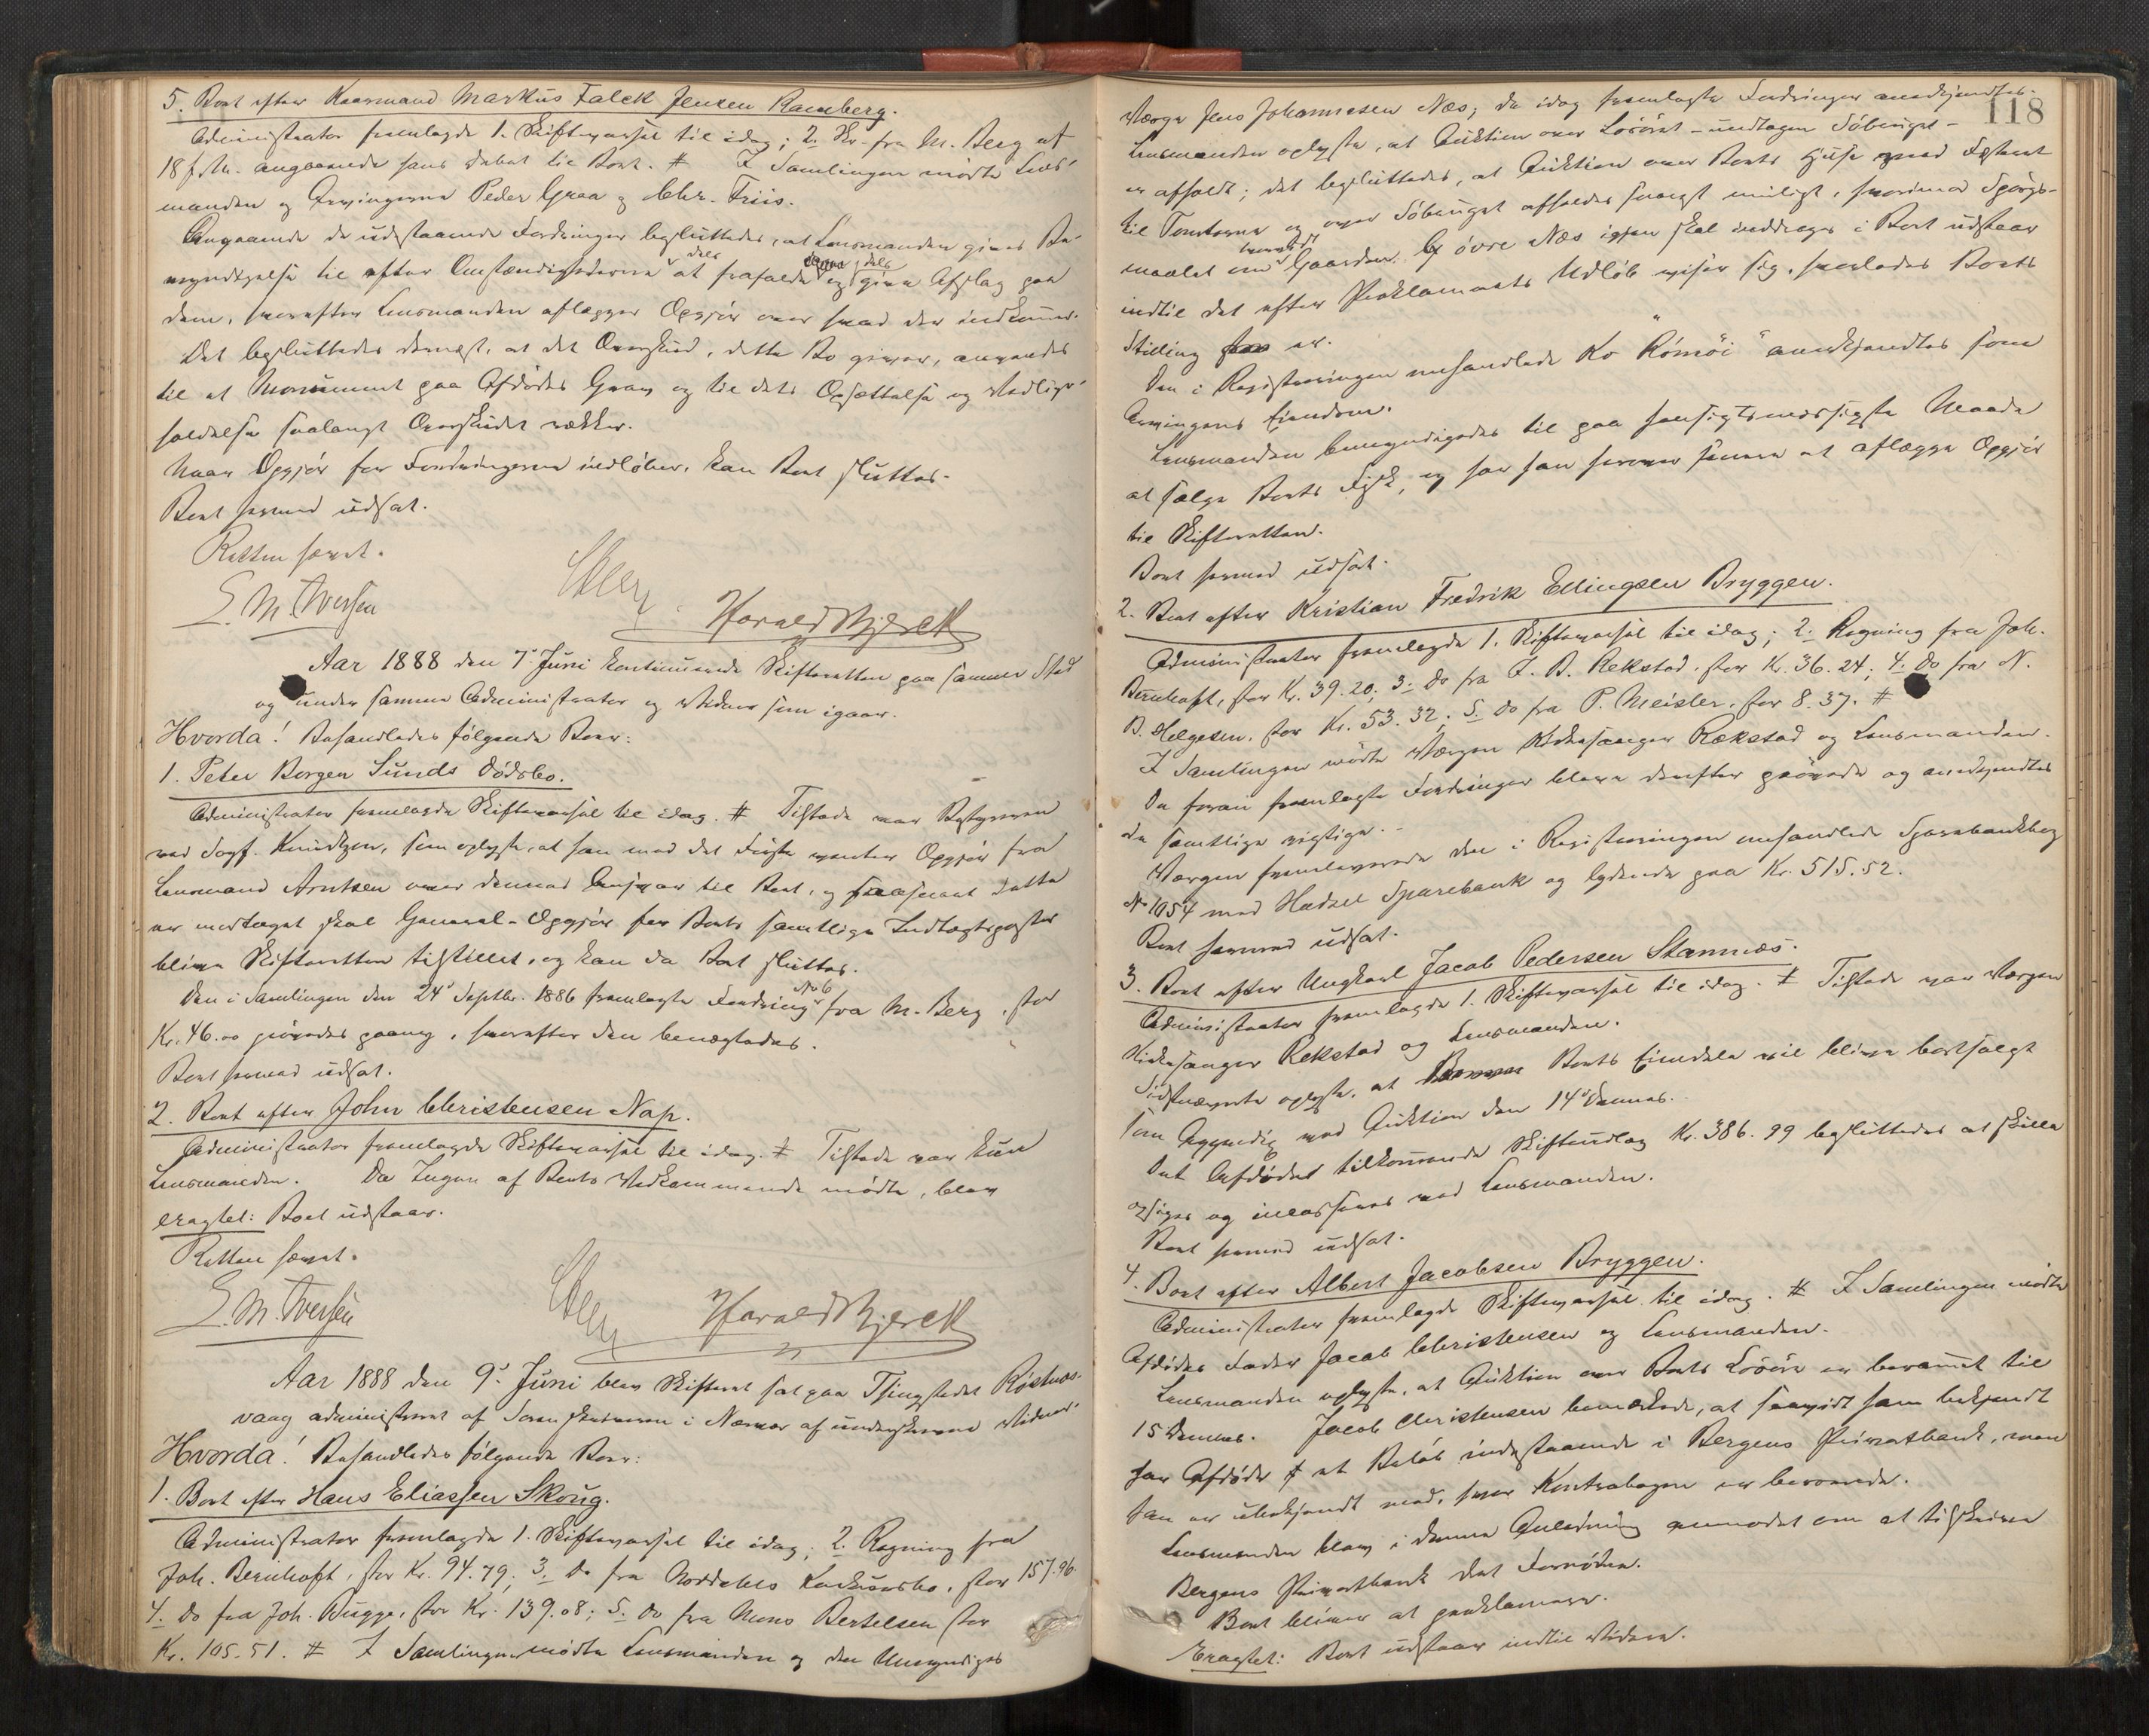 5. Boet efter Kaarmand Markus Falck Jensen Ramberg.
Administrator fremlagde 1. Skiftevarsel til idag; 2. Skr. fra M. Berg af
18 f. M. angaaende hans Debet til Boet. # I Samlingen mødte Lens-
manden og Arvingerne Peder Graa og Chr. Friis.
Angaaende de udestaaende Fordringer besluttedes, at Lensmanden gives Be-
myndigelse til efter Omstændighederne dels at frafalde og dels give Afslag paa
dem, hvorefter Lensmanden aflægger Opgjør over hvad der indkommer.
Det besluttedes dernæst, at det Overskud, dette Bo giver, anvendes
til et Monument paa Afdødes Grav og til dets Opsættelse og Vedlige-
holdelse saalangt Overskudet rækker.
Naar Opgjør for Fordringerne indløber, kan Boet sluttes.
Boet hermed udsat.
Retten hævet.
E. M. Iversen Harald Bjerck
Aar 1888 den 7' Juni kontinuerede Skifteretten paa samme Sted
og under samme Administrator og Vidner som igaar.
Hvorda! Behandledes følgende Boer:
1. Peter Borgen Sunds Dødsbo.
Administrator fremlagde Skiftevarsel til idag. # Tilstede var Bestyreren
ved Sagf. Knudtzon, som oplyste, at han med det Første venter Opgjør fra
Lensmand Arntzen over dennes Ansvar til Boet, og saasnart dette
er modtaget skal General-Opgjør for Boets samtlige Indtægtsposter
blive Skifteretten tilstillet, og kan da Boet sluttes.
Den i Samlingen den 24' Septbr. 1886 fremlagte Fordring No 6 fra M. Berg, stor
Kr. 46.00 prøvedes paany, hvorefter den benægtedes.
Boet hermed udsat.
2. Boet efter John Christensen Nap.
Administrator fremlagde Skiftevarsel til idag. # Tilstede var kun
Lensmanden. Da Ingen af Boets Vedkommende mødte, blev
eragtet: Boet udstaar.
Retten hævet.
E. M. Iversen Harald Bjerck
Aar 1888 den 9' Juni blev Skifteret sat paa Thingstedet Røstnes-
vaag administreret af Sorenskriveren i Nærvær af underskrevne Vidner.
Hvorda! Behandledes følgende Boer:
1. Boet efter Hans Eliassen Skoug.
Administrator fremlagde 1. Skiftevarsel til idag; 2. Regning fra
Joh. Bernhoft, stor Kr. 94.79; 3. Do fra Norddahls Konkursbo, stor 157.96.
4. Do fra Joh. Bugge, stor Kr. 139.08; 5. Do fra Mons Bertelsen stor
Kr. 105.51. # I Samlingen mødte Lensmanden og den Umyndiges
118
Værge Jens Johannesen Næs; de idag fremlagte Fordringer anerkjendtes.
Lensmanden oplyste, at Auktion over Løsøret - undtagen Søbruget -
er afholdt; det besluttedes, at Auktion over Boets Huse med Festeret
til Tomterne og over Søbruget afholdes snarest muligt, hvorimod Spørgs-
maalet om hvorvidt Gaarden Br øvre Næs igjen skal inddrages i Boet udstaar
indtil det efter Proklamaets Udløb viser sig, hvorledes Boets
Stilling er.
Den i Registreringen omhandlede Ko "Römöi" anerkjendtes som
Arvingens Eiendom.
Lensmanden bemyndigedes til paa hensigtsmæssigste Maade
at sælge Boets Fisk, og har han herover senere at aflægge Opgjør
til Skifteretten.
Boet hermed udsat.
2. Boet efter Kristian Fredrik Ellingsen Bryggen.
Administrator fremlagde 1. Skiftevarsel til idag; 2. Regning fra Joh.
Bernhoft, stor Kr. 39.20; 3. Do fra I. B. Rekstad, stor Kr. 36.24; 4. Do fra N.
B. Helgesen, stor Kr. 53.32; 5. Do fra P. Meisler, stor 8.37. #
I Samlingen mødte Værgen Kirkesanger Rekstad og Lensmanden.
De foran fremlagte Fordringer bleve derefter prøvede og anerkjendtes
de samtlige rigtige. -
Værgen fremleverede den i Registreringen omhandlede Sparebankbog
No 1054 med Hadsel Sparebank og lydende paa Kr. 515.52.
Boet hermed udsat.
3. Boet efter Ungkarl Jacob Pedersen Stamnæs.
Administrator fremlagde 1. Skiftevarsel til idag. # Tilstede var Værgen
Kirkesanger Rekstad og Lensmanden.
Sidstnævnte oplyste, at Boets Eiendele vil blive bortsolgt
ved Auktion den 14' dennes.
Det Afdøde tilkommende Skifteudlæg Kr. 386.99 besluttedes at skulle
opsiges og incasseres ved Lensmanden.
Boet hermed udsat.
4. Boet efter Albert Jacobsen Bryggen.
Administrator fremlagde Skiftevarsel til idag. # I Samlingen mødte
Afdødes Fader Jacob Christensen og Lensmanden.
Lensmanden oplyste, at Auktion over Boets Løsøre er berammet til
15 dennes. Jacob Christensen bemærkede, at saavidt ham bekjendt
har Afdøde et Beløb indestaaende i Bergens Privatbank, men
han er ubekjendt med, hvor Kontrabogen er beroende.
Lensmanden blev i denne Anledning anmodet om at tilskrive
Bergens Privatbank det Fornødne.
Boet bliver at proklamere.
Eragtet: Boet udstaar indtil videre.